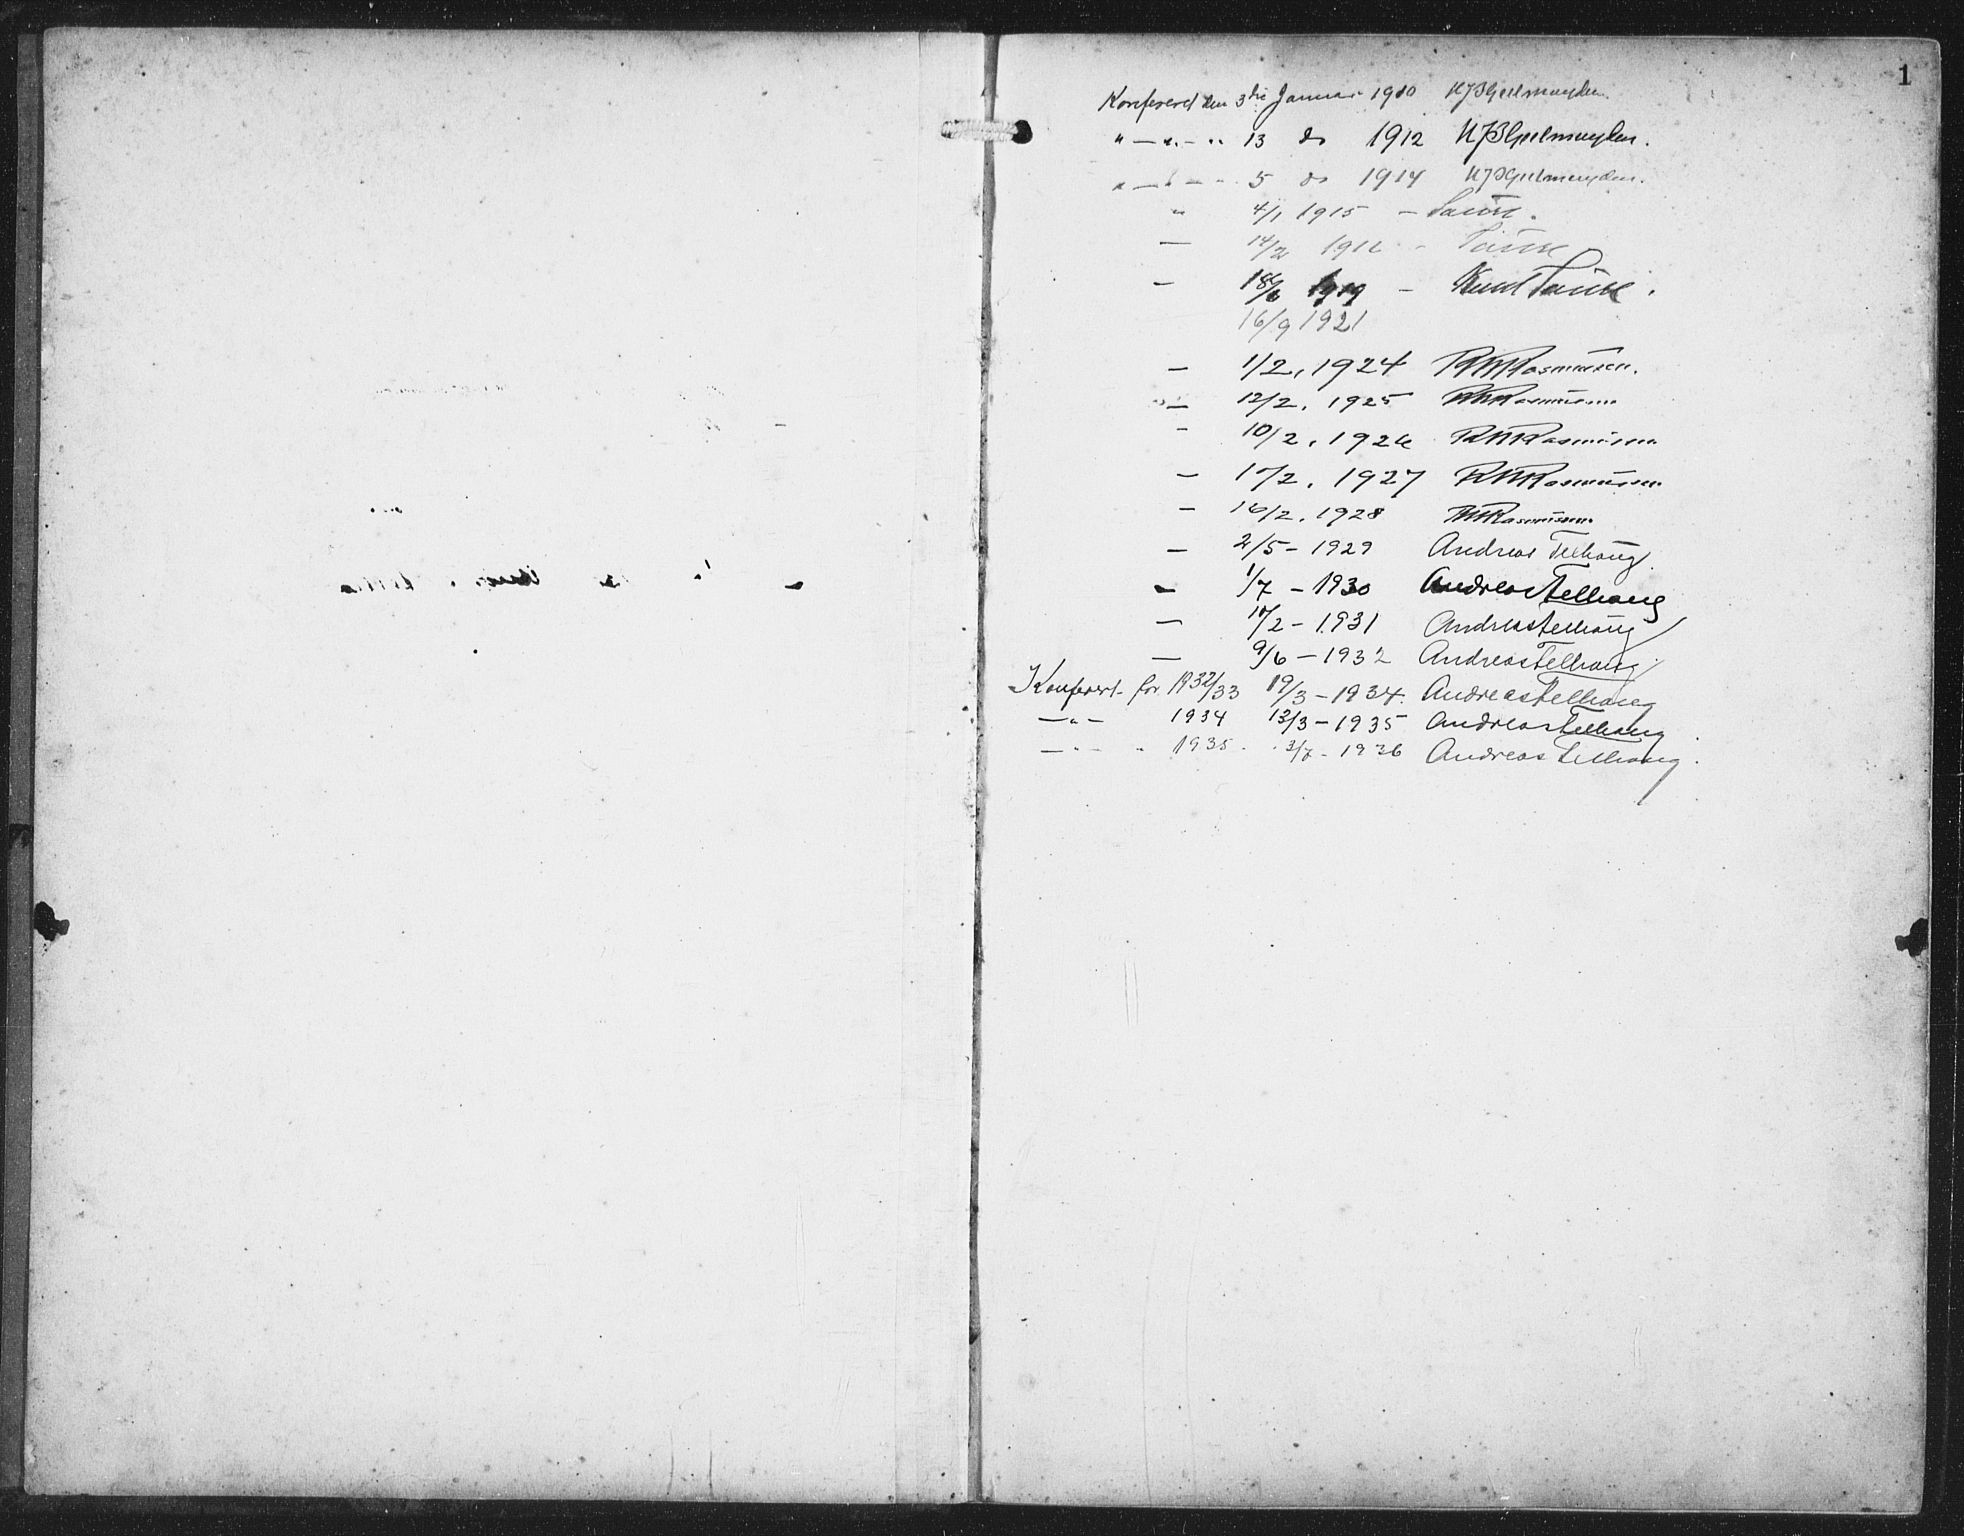 1
Konfereret den 3die Januar 1910 H J B Geelmuyden.
" — " — " 13 do 1912 H J B Geelmuyden.
" — " — - 5 do 1914 H J B Geelmuyden.
" 4/1 1915 —
— 14/2 -
— 18/6 1919 — Knut
16/9 1921
— 1/2. 1924 Rasmussen.
— 12/2. 1925 Rasmussen
- 10/2. 1926 Rasmussen
— 17/2. 1927 Rasmussen
— 16/2. 1928 Rasmussen
— 2/5 - 1929 Andreas Tellhaug.
— 1/7 - 1930 Andreas Tellhaug
— 17/2 - 1931 Andreas Tellhaug
— 9/6 - 1932 Andreas Tellhaug.
Konferert for 1932/33 19/3 - 1934. Andreas Tellhaug
— " — 1934 13/3 - 1935 Andreas Tellhaug.
— " — " 1935 3/7 - 1936 Andreas Tellhaug.